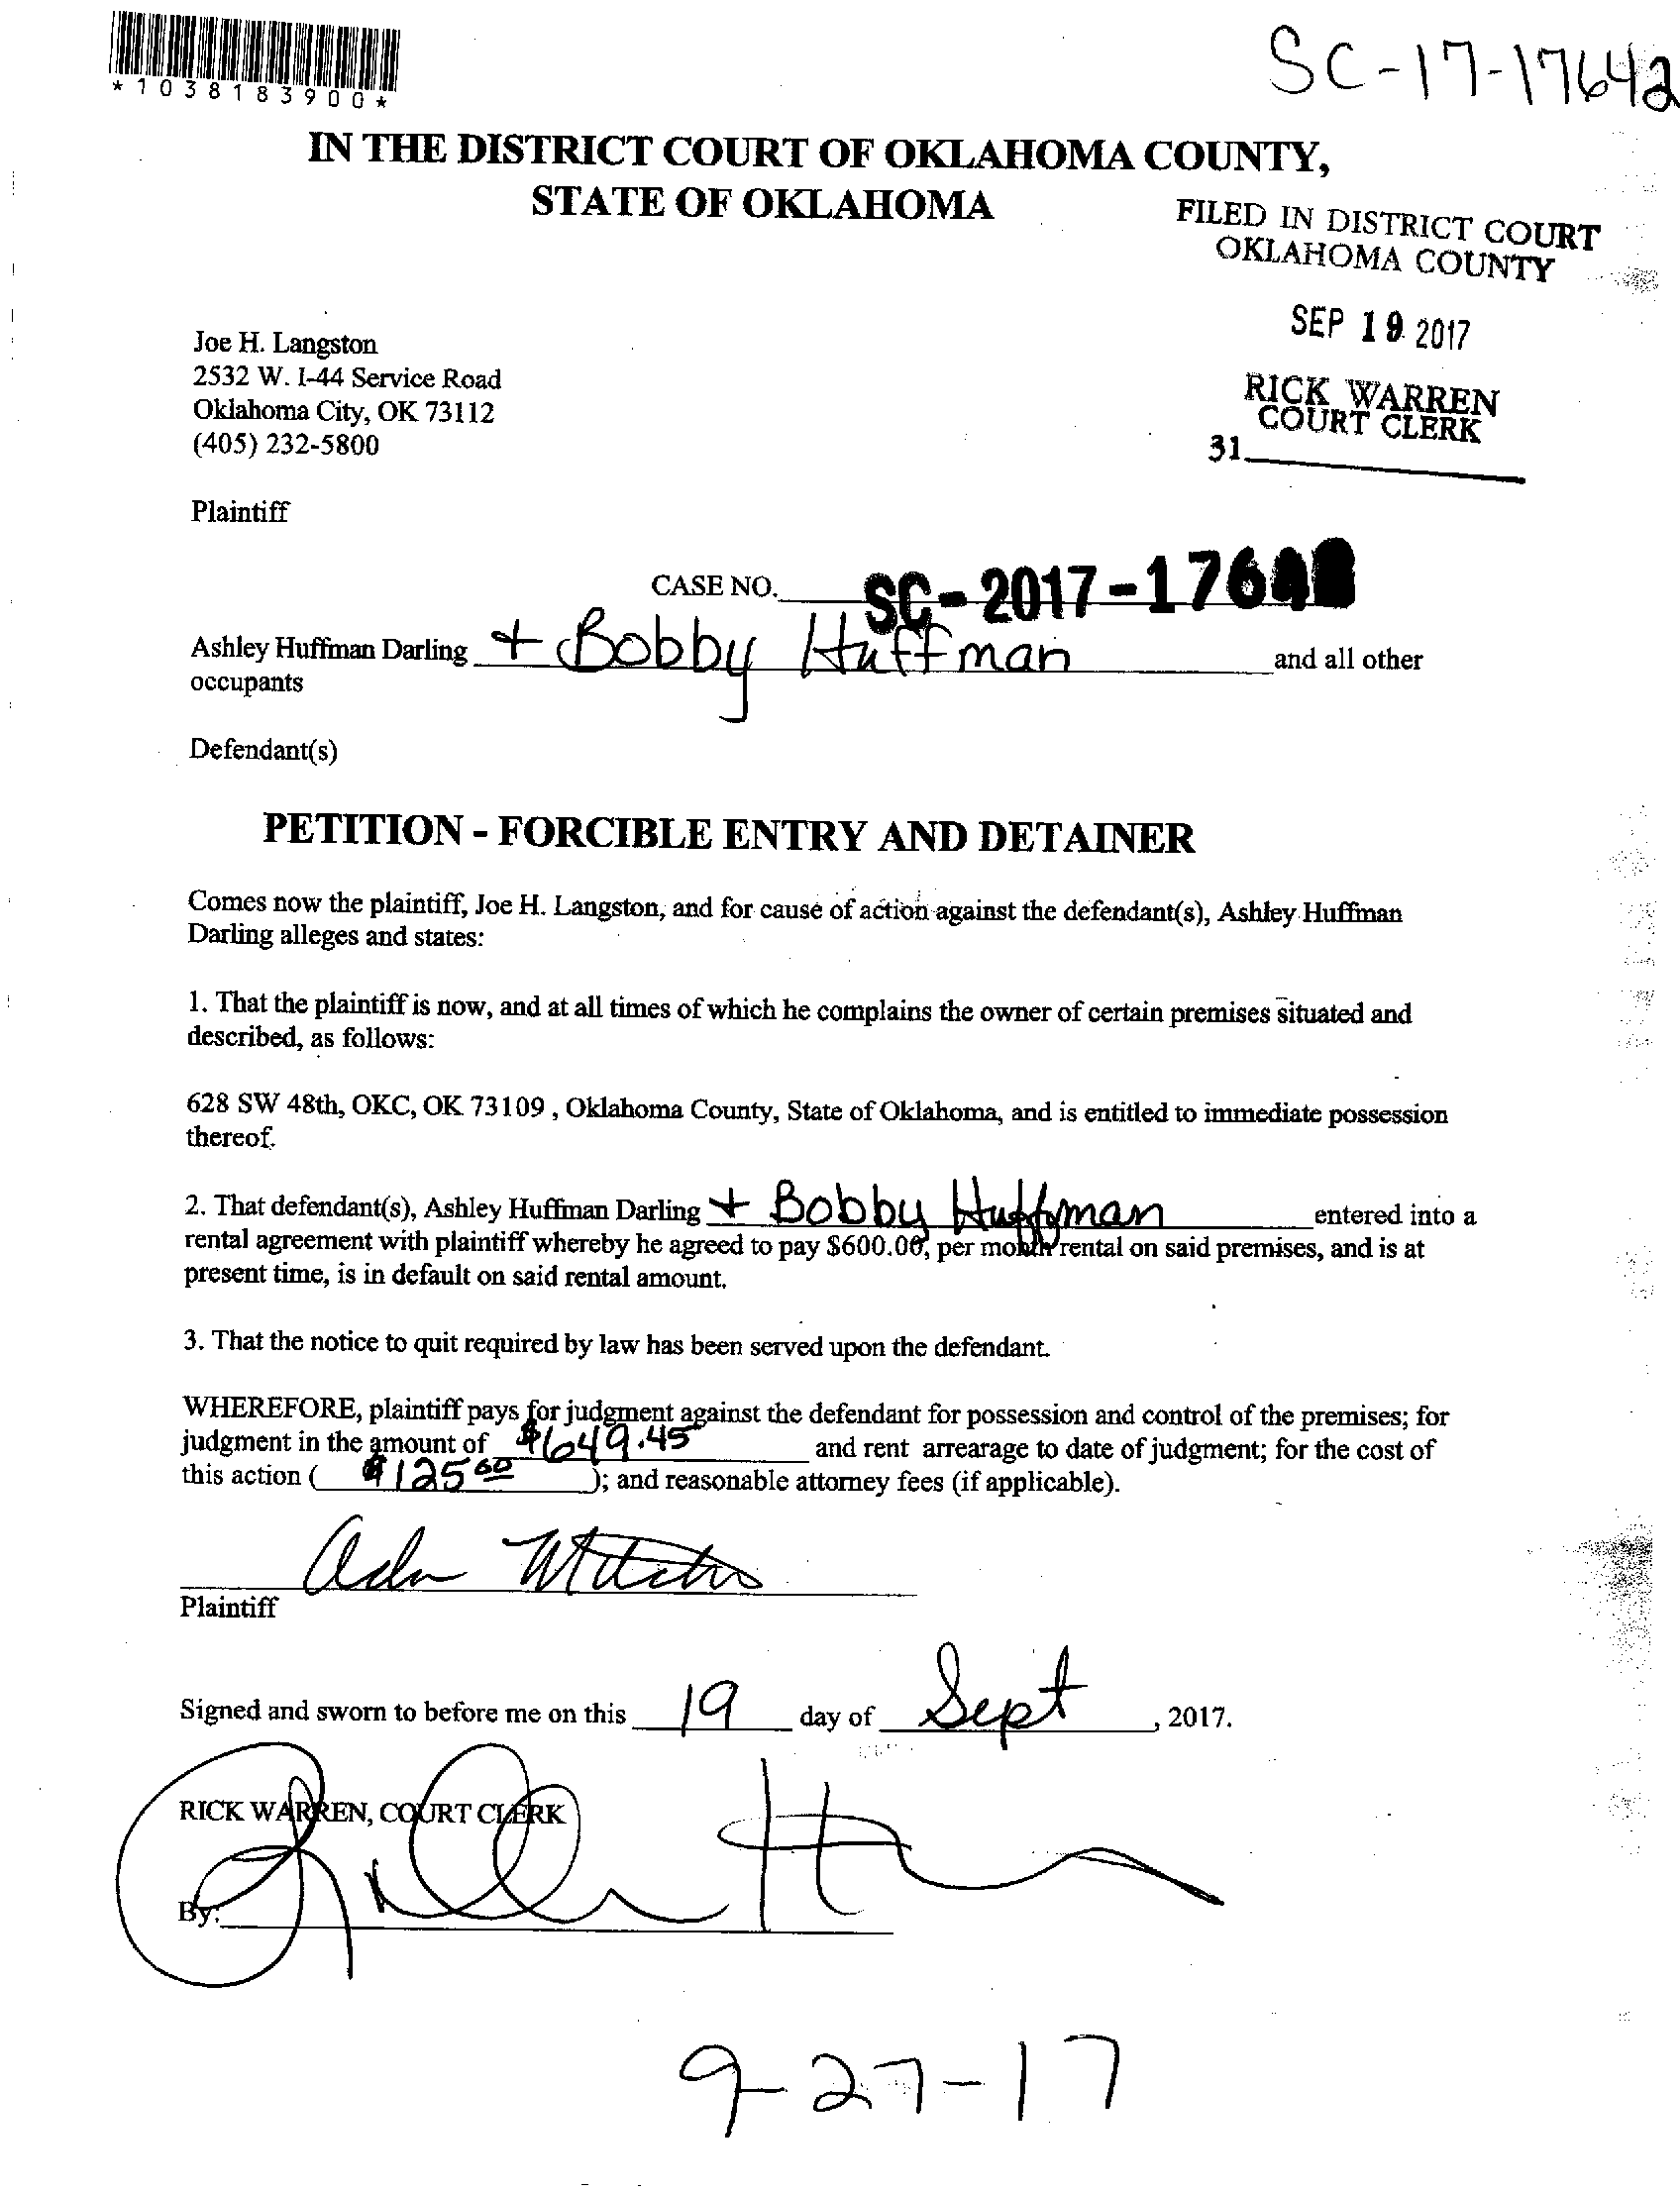 *1038183900*
SC-17-17642
IN THE DISTRICT COURT OF OKLAHOMA COUNTY,
STATE OF OKLAHOMA
FILED IN DISTRICT COURT
OKLAHOMA COUNTY
SEP 19 2017
RICK WARREN
COURT CLERK
31
Joe H. Langston
2532 W. I-44 Service Road
Oklahoma City, OK 73112
(405) 232-5800
Plaintiff
CASE NO. SC-2017-1764
Ashley Huffman Darling + Bobby Huffman and all other
occupants
Defendant(s)
PETITION - FORCIBLE ENTRY AND DETAINER
Comes now the plaintiff, Joe H. Langston, and for cause of action against the defendant(s), Ashley Huffman
Darling alleges and states:
1. That the plaintiff is now, and at all times of which he complains the owner of certain premises situated and
described, as follows:
628 SW 48th, OKC, OK 73109 , Oklahoma County, State of Oklahoma, and is entitled to immediate possession
thereof.
2. That defendant(s), Ashley Huffman Darling + Bobby Huffman entered into a
rental agreement with plaintiff whereby he agreed to pay $600.00, per month rental on said premises, and is at
present time, is in default on said rental amount.
3. That the notice to quit required by law has been served upon the defendant.
WHEREFORE, plaintiff pays for judgment against the defendant for possession and control of the premises; for
judgment in the amount of $649.45 and rent arrearage to date of judgment; for the cost of
this action ( $125 60 ); and reasonable attorney fees (if applicable).
Plaintiff
Signed and sworn to before me on this 19 day of Sept , 2017.
RICK WARREN, COURT CLERK
By:
9-27-17